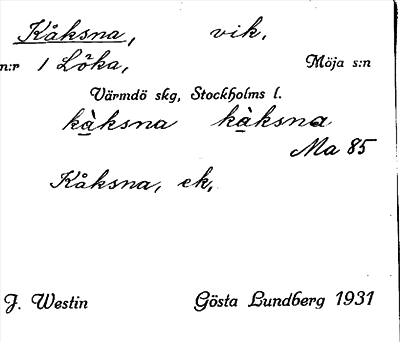 Kåksna, vik,
n:r 1 Löka, Möja s:n
Värmdö skg, Stockholms l.
kàksna kàksna
Ma 85
Kåksna, ek,
J. Westin Gösta Lundberg 1931